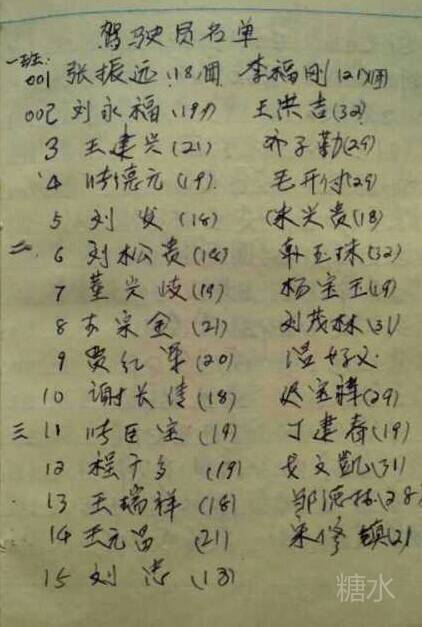 驾驶员名单
一班:
001 张振远(18)团 李福刚(21)团
002 刘永福(19) 王洪吉(32)
3 王建兴(21) 乔子勤(29)
4 张德元(19) 毛开付(29)
5 刘发(18) 宋兴贵(18)
二 6 刘松贵(18) 韩玉珠(32)
7 董兴岐(19) 杨宝玉(19)
8 宗金(21) 刘茂林(31)
9 贾红军(20) 温好义
10 谢长清(18) 迟宝祥(29)
三 11 张巨宝(19) 丁建春(19)
12 程于多(19) 文凯(31)
13 王瑞祥(18) 邹德林(28)
14 王元昌(21) 宋修镇(21
15 刘忠(13)
糖水